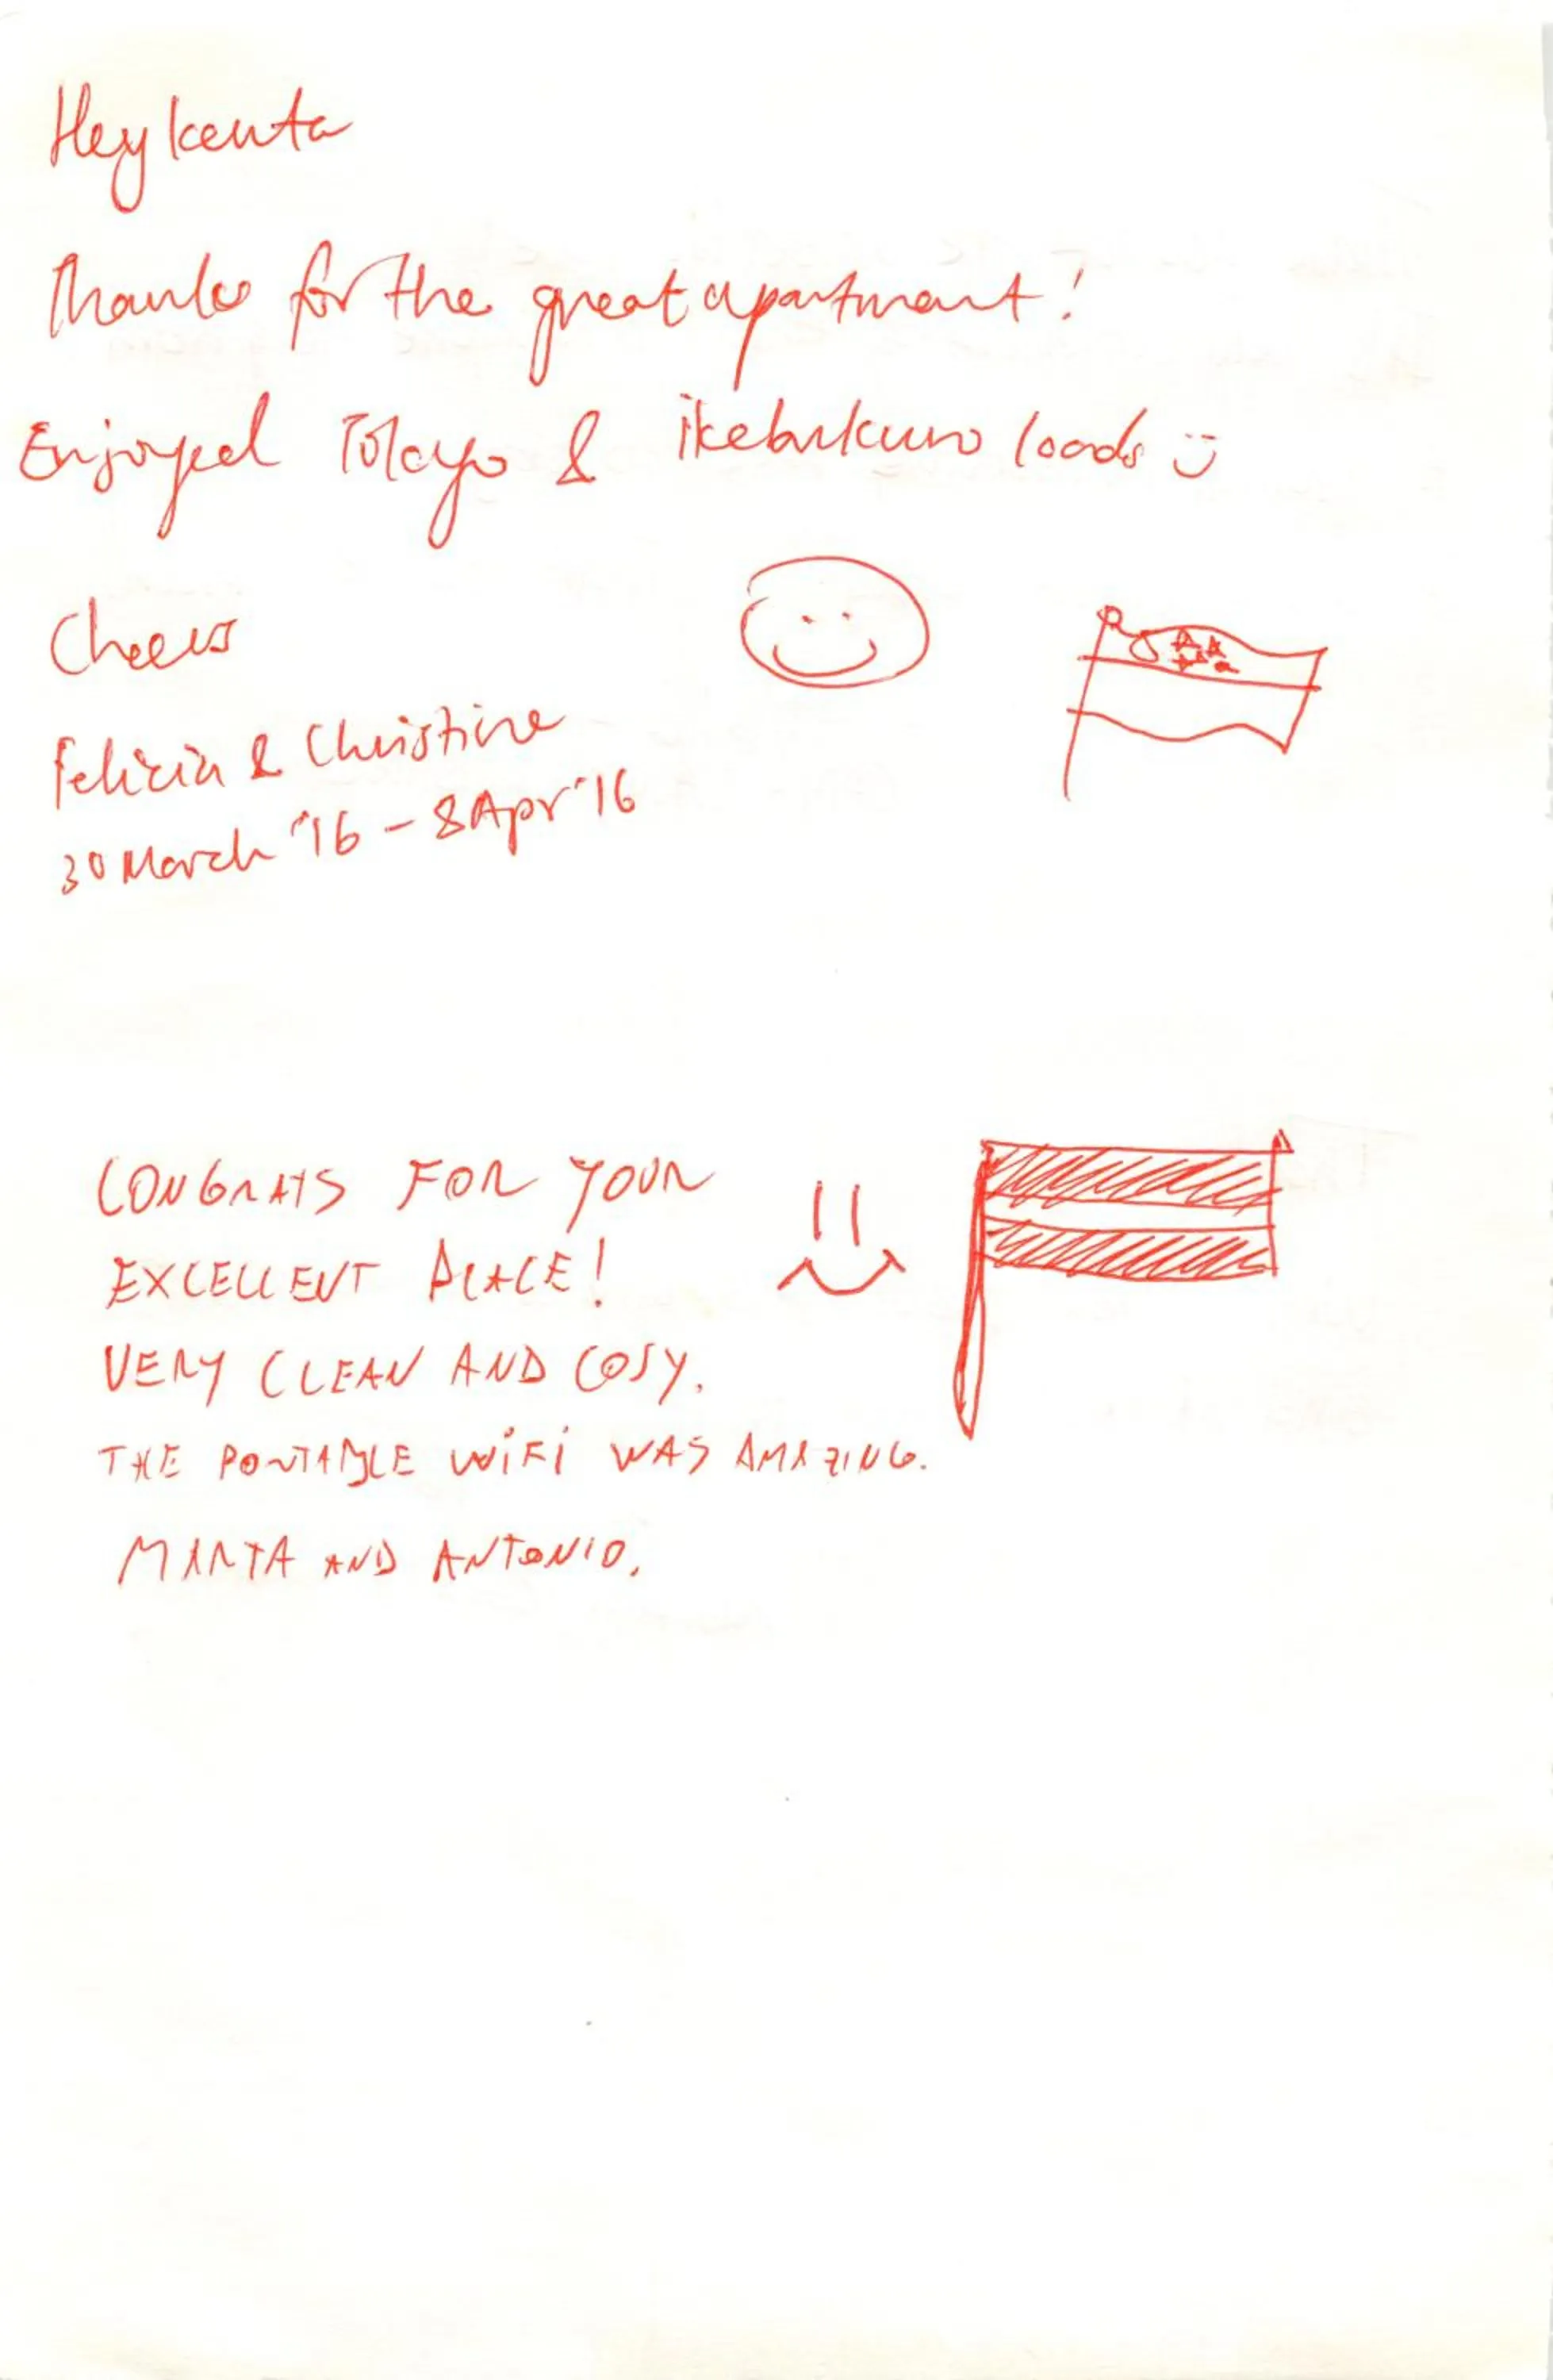 Hey Kenta
Thanks for the great apartment!
Enjoyed Tokyo & ikebukuro loads :)
Cheers
Felicia & Christine
30 March '16 - 8 Apr '16
CONGRATS FOR YOUR
EXCELLENT PLACE!
VERY CLEAN AND COSY.
THE PORTABLE WiFi WAS AMAZING.
MARTA AND ANTONIO.